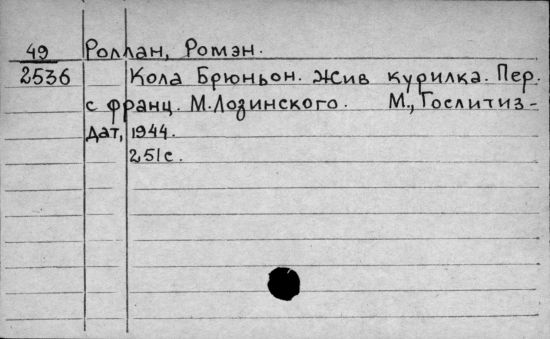 49 Роллан, Ромэн.
2536 Кола Брюньон. Жив курилка. Пер.
с франц. М.Лозинского. М., Гослитиз-
дат, 1944.
251с.